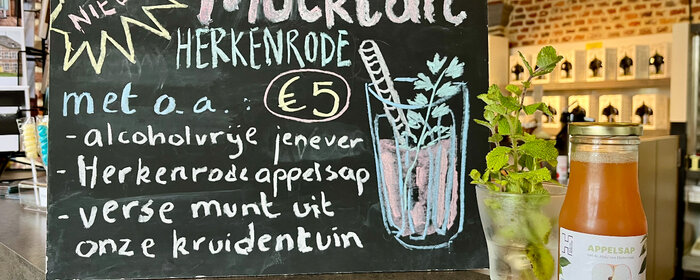 NIEUW
Mocktail
HERKENRODE
met o.a.: €5
- alcoholvrije jenever
- Herkenrode appelsap
- verse munt uit
onze kruidentuin
APPELSAP